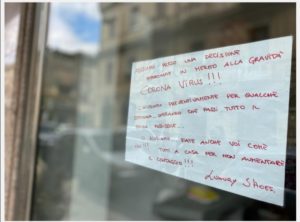 ABBIAMO PRESO UNA DECISIONE
IN MERITO ALLA GRAVITA'
CORONA VIRUS!!!
PREVENTIVAMENTE PER QUALCHE
SPERANDO CHE PASSI TUTTO IL
FATE ANCHE VOI COME
!!! TUTTI A CASA PER NON AUMENTARE
IL CONTAGIO!!!
LUXURY SHOES